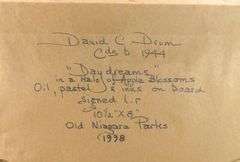 David C. Drum
Cdn b 1944
"Daydreams"
in a Halo of Apple Blossoms
Oil, pastel & inks on board
signed l.r
10½" X 8"
Old Niagara Parks
1998